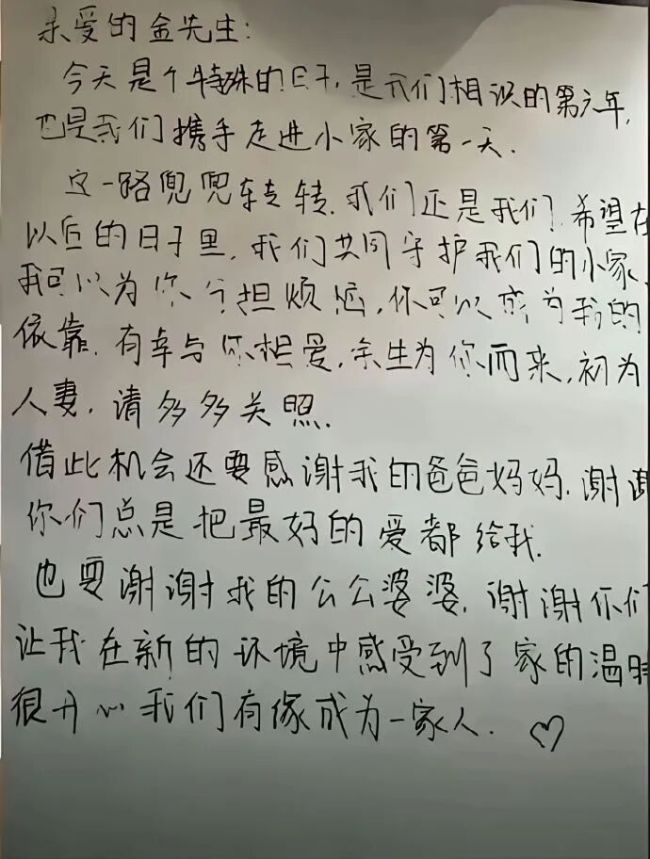 亲爱的金先生:
今天是个特殊的日子,是我们相识的第六年,
也是我们携手走进小家的第一天.
这一路兜兜转转.我们还是我们.希望在
以后的日子里,我们共同守护我们的小家.
我可以为你分担烦恼,你可以成为我的
依靠.有幸与你相爱,余生为你而来,初为
人妻,请多多关照.
借此机会还要感谢我的爸爸妈妈.谢谢
你们总是把最好的爱都给我.
也要谢谢我的公公婆婆,谢谢你们
让我在新的环境中感受到了家的温暖
很开心我们有缘成为一家人. ♡